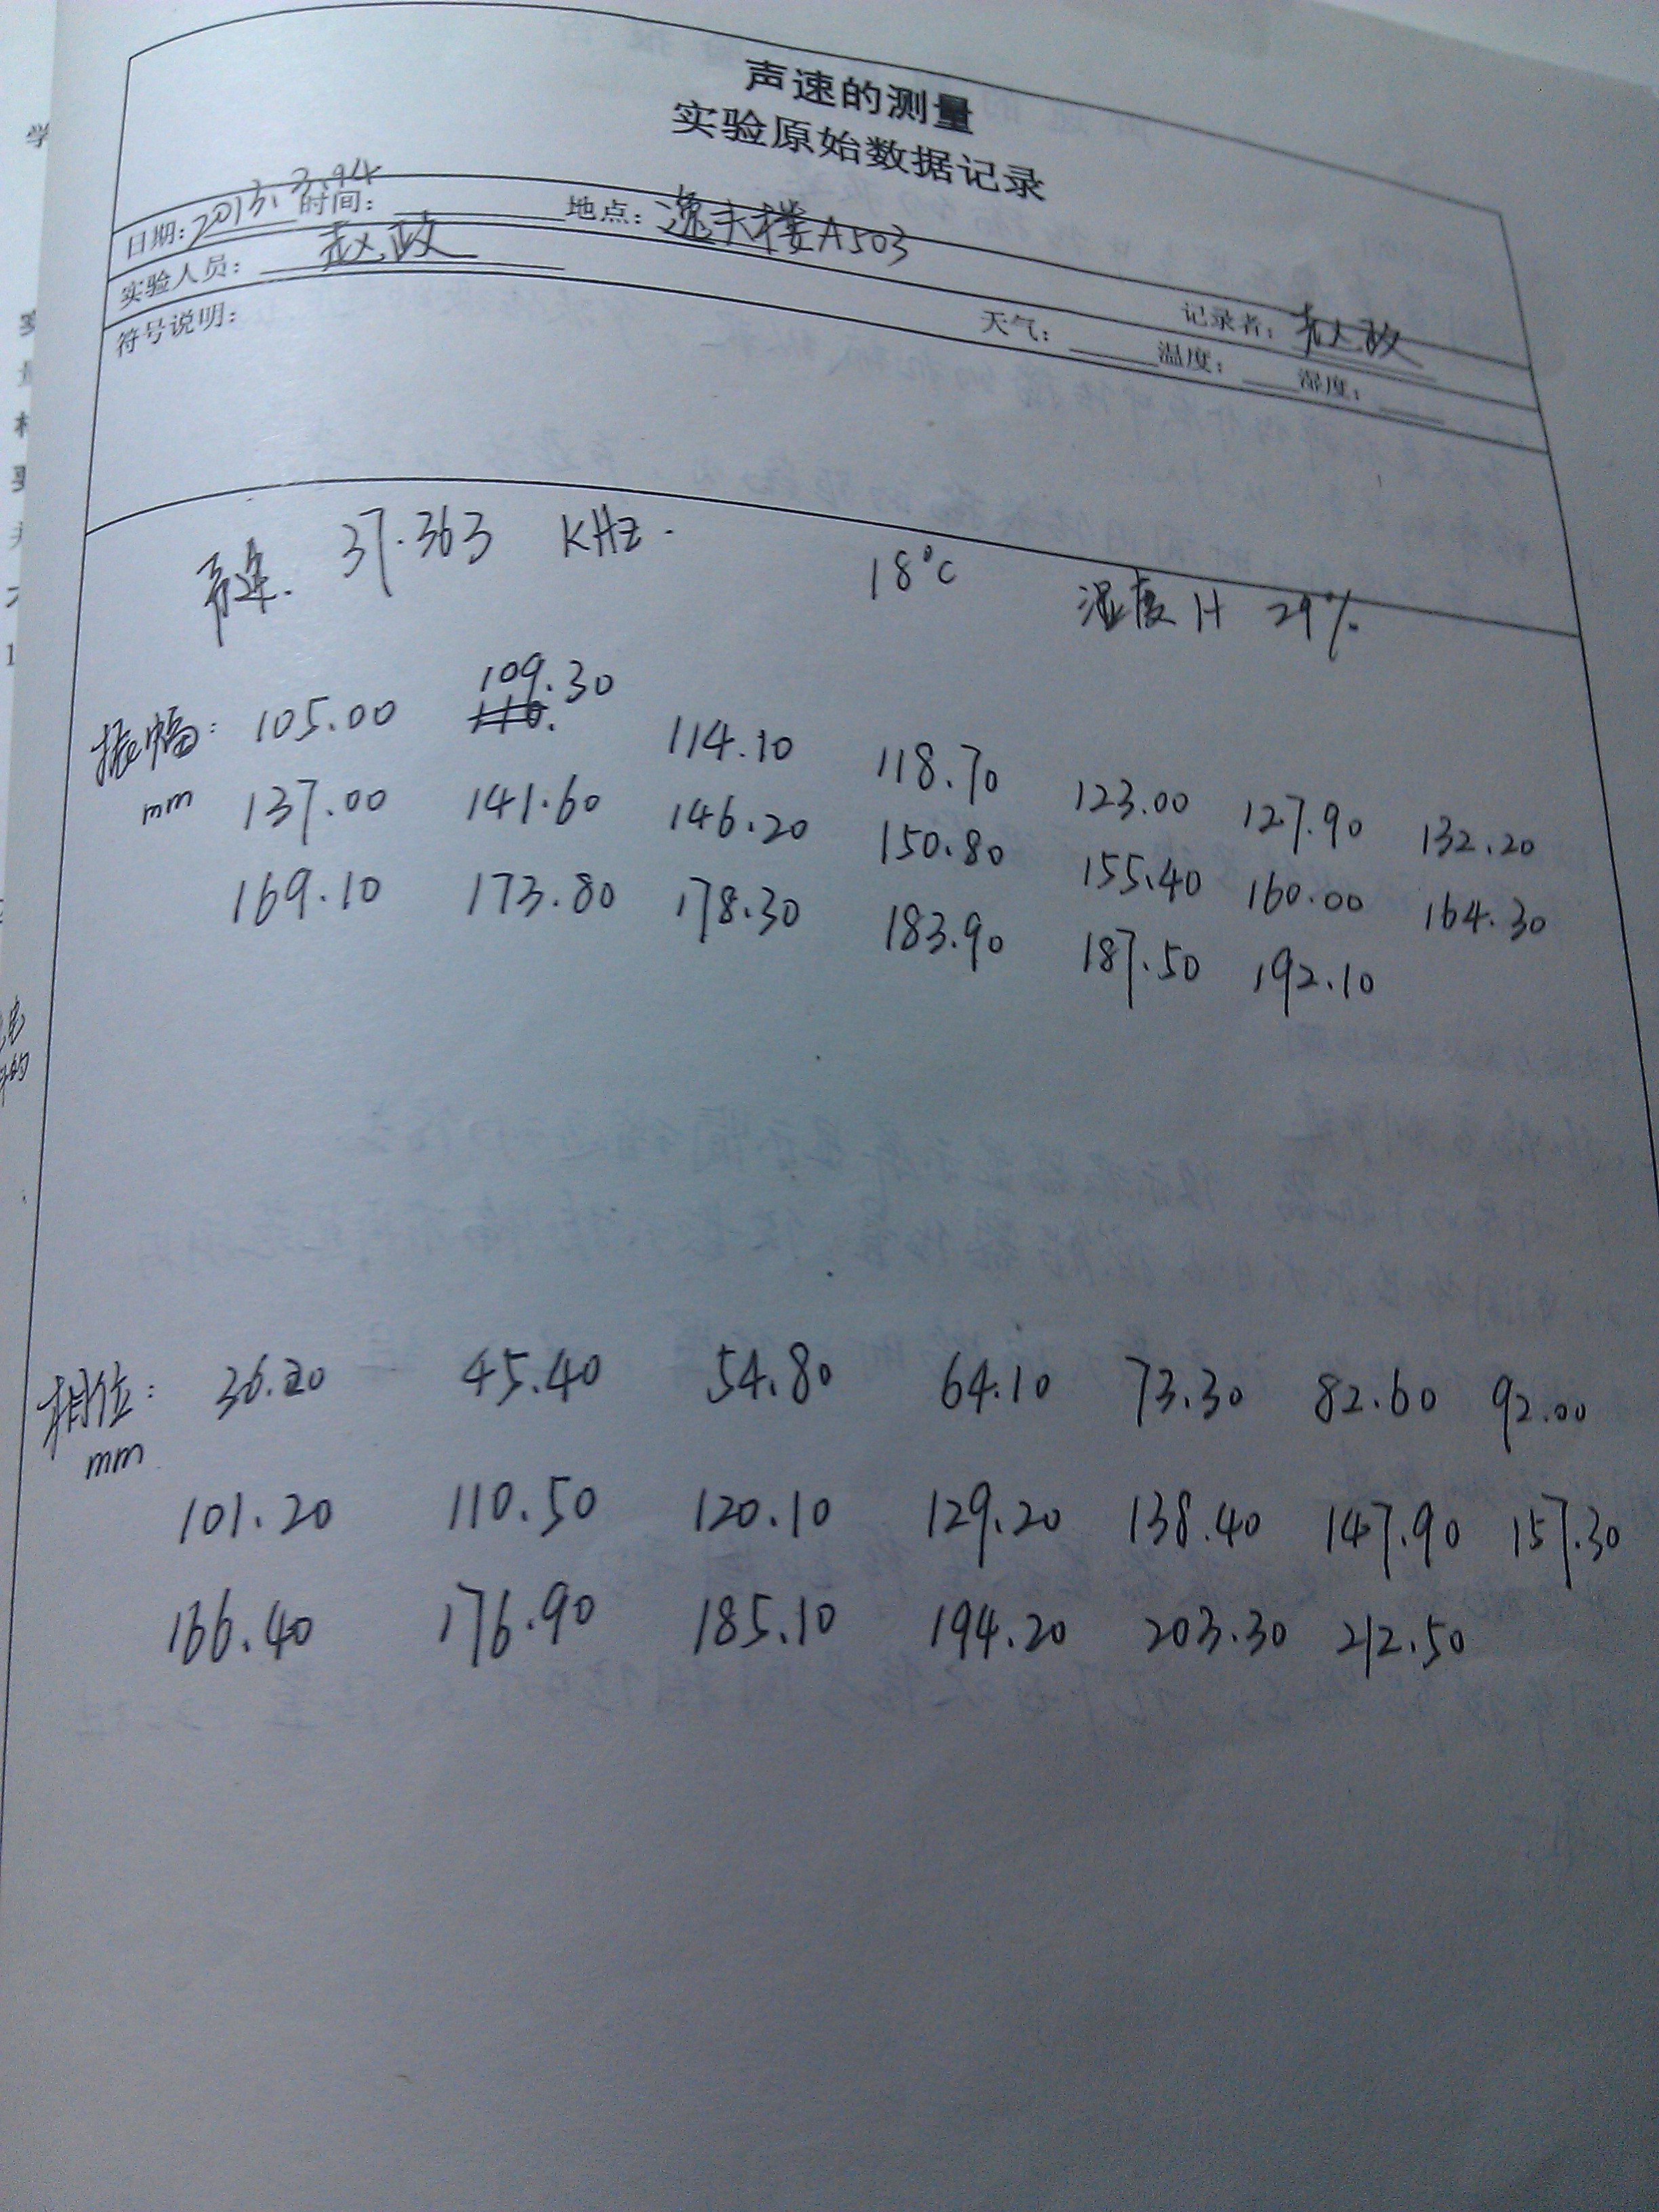 声速的测量
实验原始数据记录
日期: 2013.3.14 时间: 地点: 逸夫楼A503
实验人员: 赵政 记录者: 赵政
符号说明: 天气: 温度: 湿度:
声速. 37.363 KHz. 18°C 湿度 H 29%
振幅: 105.00 109.30 114.10 118.70 123.00 127.90 132.20
mm 137.00 141.60 146.20 150.80 155.40 160.00 164.30
169.10 173.80 178.30 183.90 187.50 192.10
相位: 36.20 45.40 54.80 64.10 73.30 82.60 92.00
mm
101.20 110.50 120.10 129.20 138.40 147.90 157.30
166.40 176.90 185.10 194.20 203.30 212.50